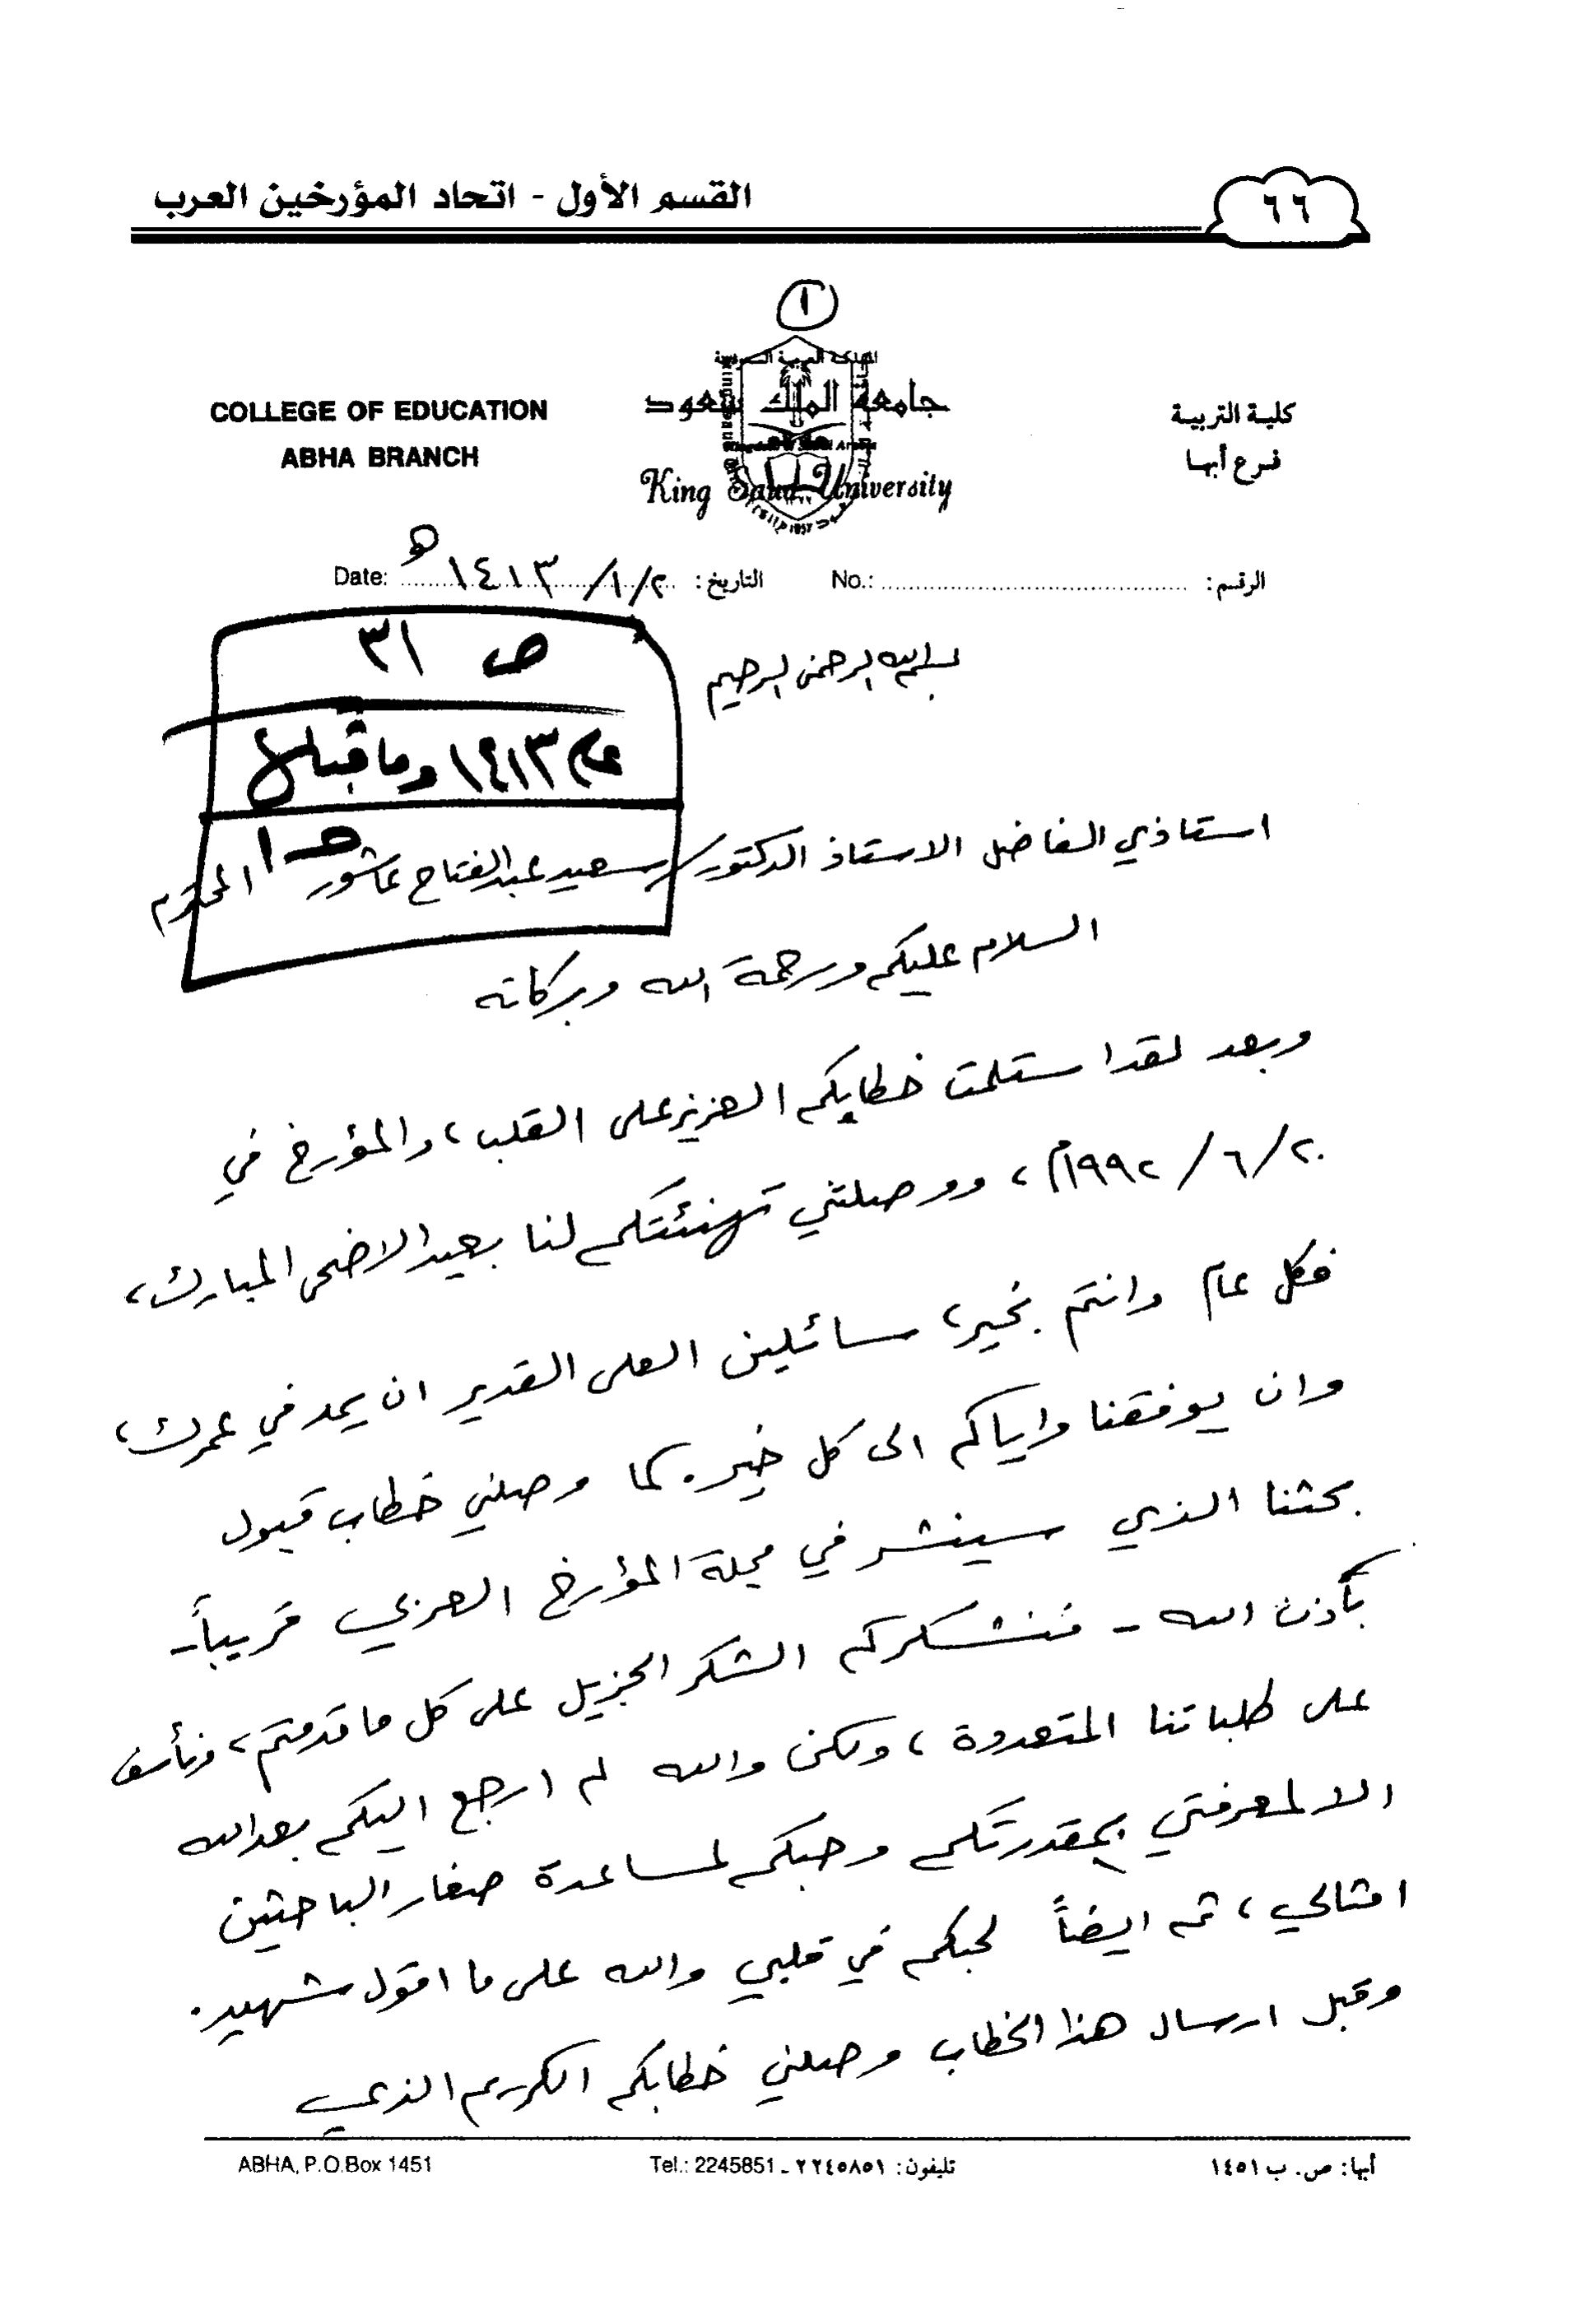 ٦٦
القسم الأول - اتحاد المؤرخين العرب
١
COLLEGE OF EDUCATION
ABHA BRANCH
المملكة العربية السعودية
جامعة الملك سعود
King Saud University
1957
كلية التربية
فرع أبها
الرقم: No.:
التاريخ: ١/٢/ ١٤١٣ هـ Date:
ص ٣١
عام ١٤١٣ وما قبلها
حـ ١
بسم الله الرحمن الرحيم
استاذي الفاضل الاستاذ الدكتور/ سعيد عبدالفتاح عاشور المحترم
السلام عليكم ورحمة الله وبركاته
وبعد لقد استلمت خطابكم العزيز على القلب، والمؤرخ في
٢٠/٦/١٩٩٢م، ووصلتني تهنئتكم لنا بعيد الاضحى المبارك،
فكل عام وانتم بخير، سائلين العلى القدير ان يمد في عمرك،
وان يوفقنا واياكم الى كل خير. كما وصلني خطاب قبول
بحثنا الذي سينشر في مجلة المؤرخ العربي قريباً-
بأذن الله - فنشكركم الشكر الجزيل على كل ما قدمتم، ونأسف
على طلباتنا المتعددة، ولكن والله لم ارجع اليكم بعد الله
الا لمعرفتي بمقدرتكم وحبكم لمساعدة صغار الباحثين
امثالي، ثم ايضاً لحبكم في قلبي والله على ما اقول شهيد.
وقبل ارسال هذا الخطاب وصلني خطابكم الكريم الذي
أبها: ص. ب ١٤٥١
تليفون: ٢٢٤٥٨٥١ - Tel.: 2245851
ABHA, P.O.Box 1451